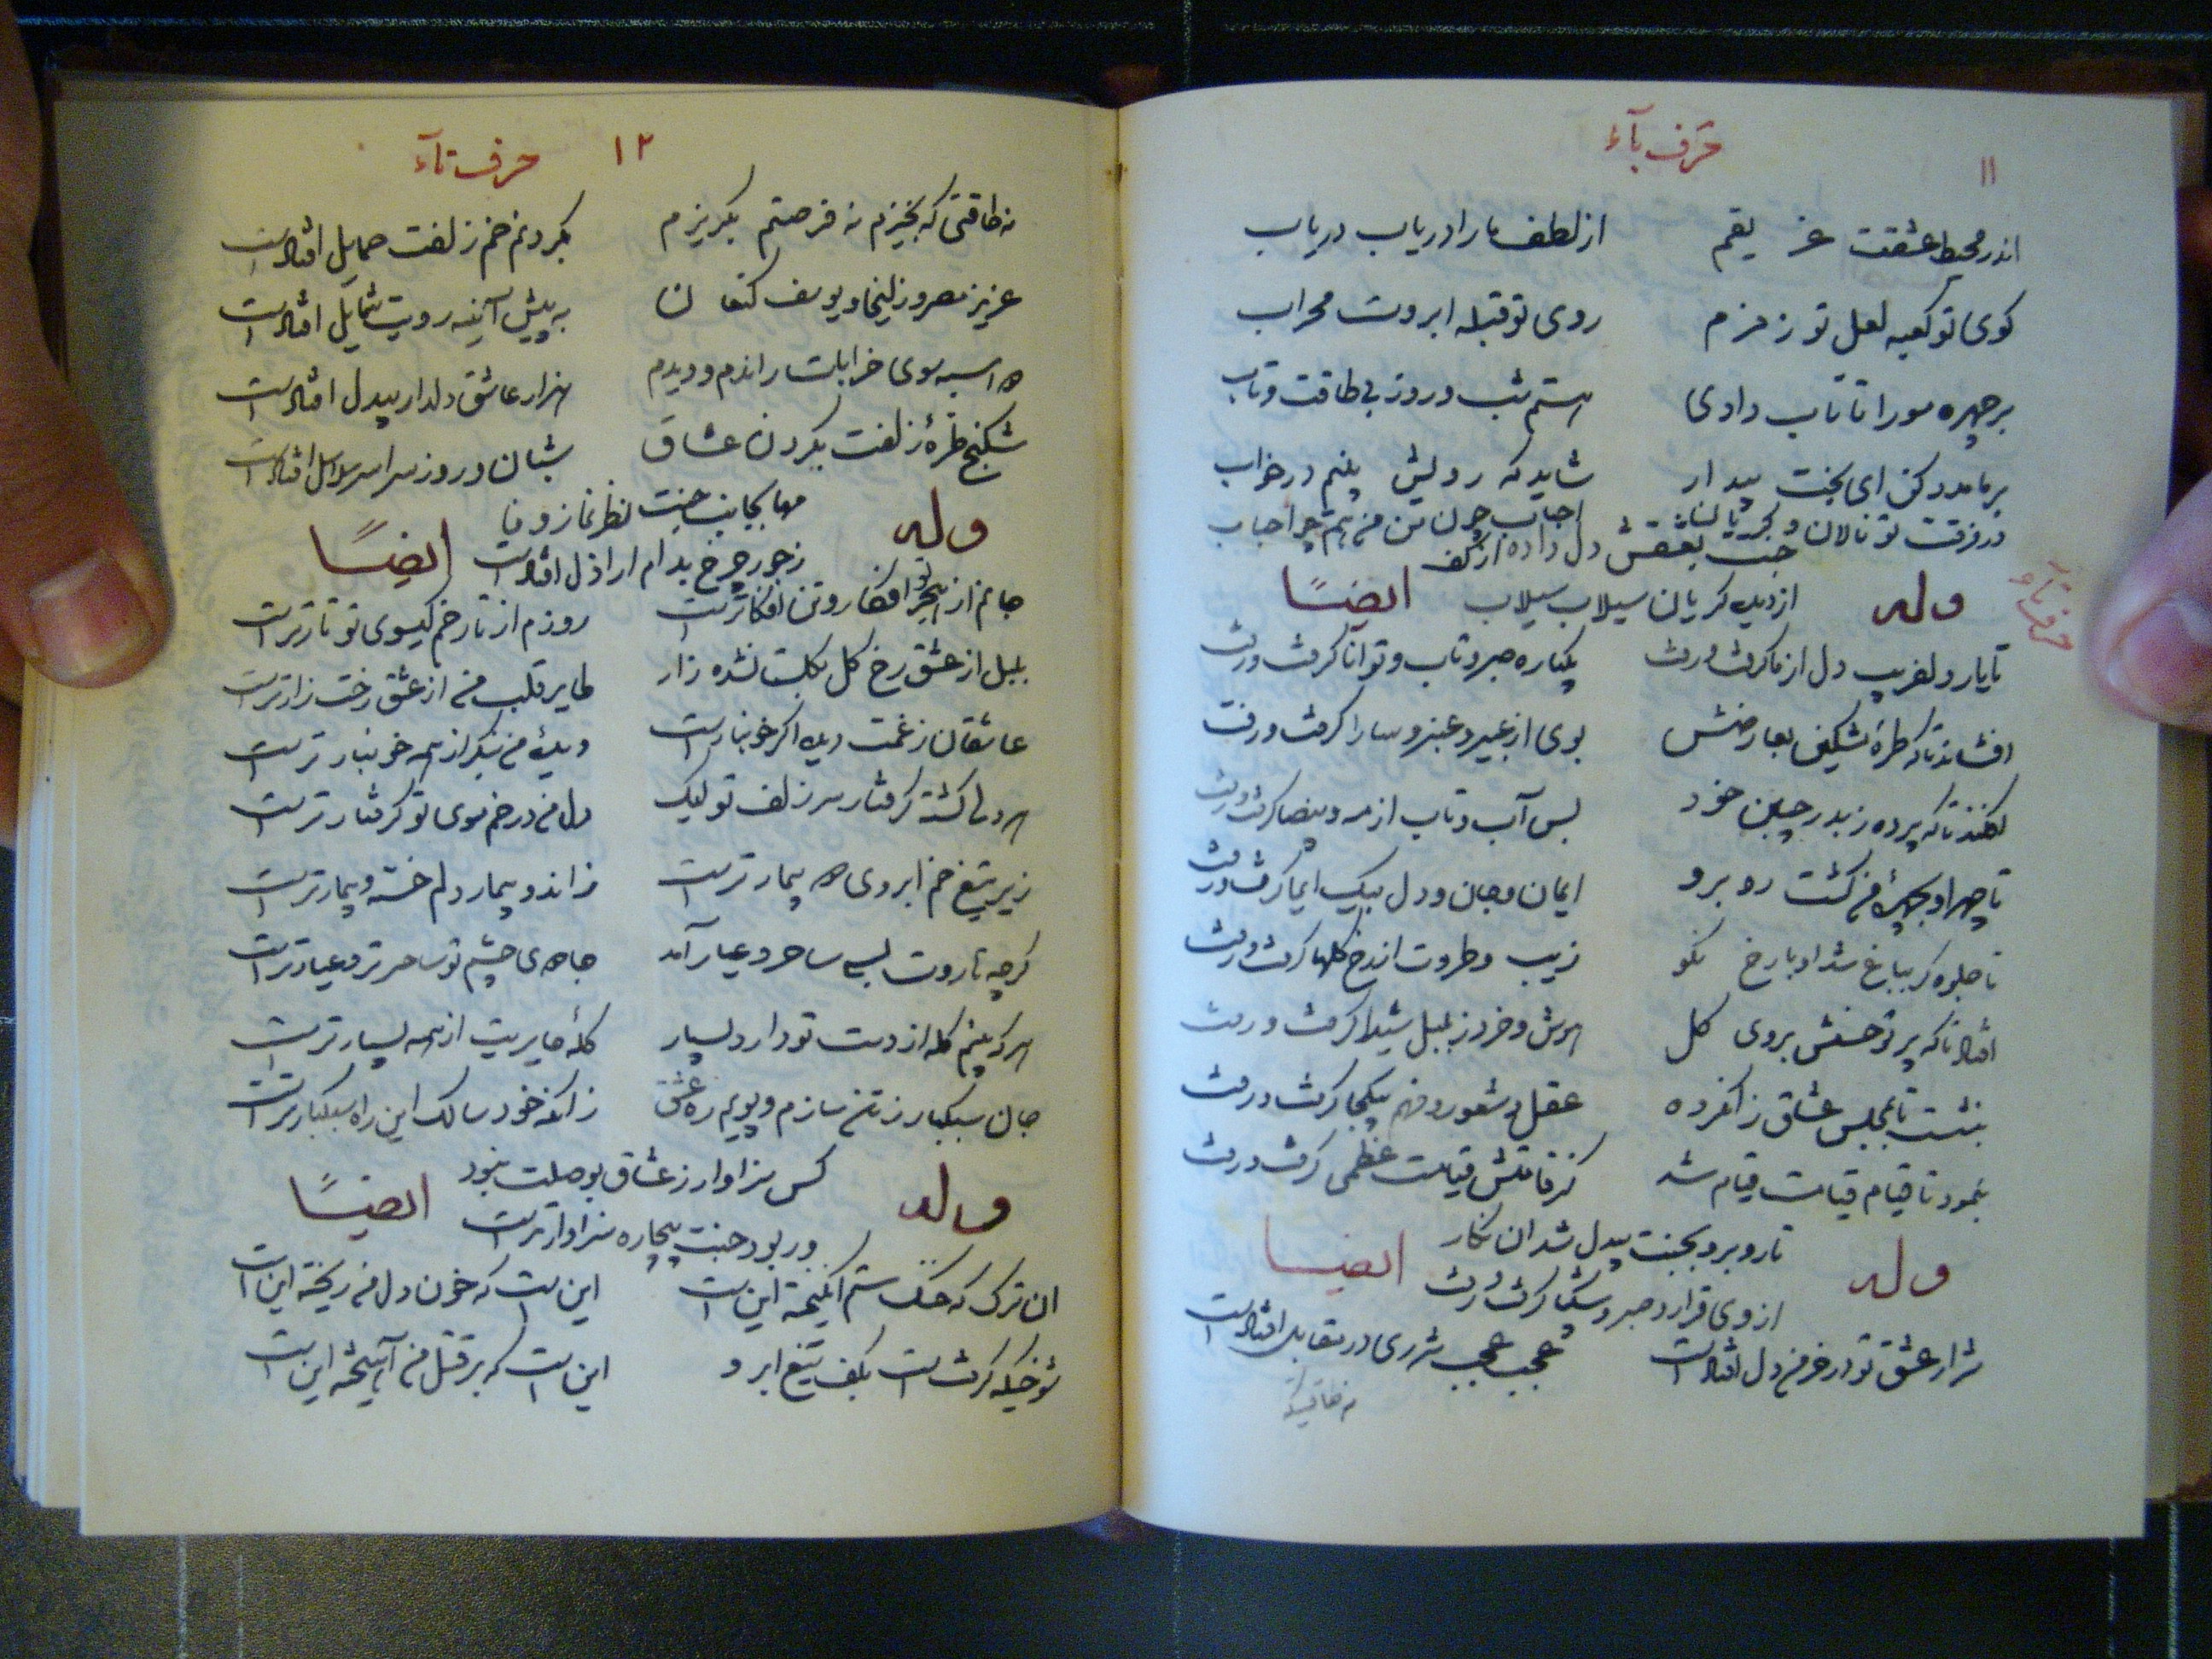 ۱۱
حرف بآء
اندر محیط عشقت غریقم از لطف مارا دریاب دریاب
کوی تو کعبه لعل تو زمزم روی تو قبله ابروت محراب
بر چهره مو را تا تاب دادی هستم شب و روز بی طاقت و تاب
بر ما مدد کن ای بخت بیدار شاید که رویش بینم در خواب
در فرقت تو نالان و
احباب چون من
دل داده از کف
حرف تاء
وله از دیده گریان سیلاب سیلاب ایضاً
تا یار دلفریب دل از ما گرفت و رفت یکباره صبر و تاب و توانا گرفت و رفت
افشاند تا که طره مشکین بعارضش بوی از عبیر و عنبر و سارا گرفت و رفت
افکند تا که پرده ز بدر جبین خود بس آب و تاب از مه و بیضا گرفت و رفت
تا چهر او بچهره من گشت روبرو ایمان و جان و دل بیک ایما گرفت و رفت
تا جلوه گر بباغ شد او با رخ نکو زیب و طروت از رخ گلها گرفت و رفت
افتاد تا که پرتو حسنش بروی گل هوش و خرد ز بلبل شیدا گرفت و رفت
بنشست تا بمجلس عشاق عقل و شعور و فهم بیکجا گرفت و رفت
بنمود تا قیام قیامت قیام شد کز قامتش قیامت عظمی گرفت و رفت
تا روبرو بجنت بیدل شد ان نگار
وله از وی قرار و صبر و شکیبا گرفت و رفت ایضا
شرار عشق تو در خرمن دل افتادست عجب عجب شرری در مقابل افتادست
نه طاقتیکه
۱۲
حرف تآء
نه طاقتی که بخیزم نه فرصتم بگریزم بگردنم خم زلفت حمایل افتادست
عزیز مصر و زلیخا و یوسف کنعان به پیش آینه رویت شمایل افتادست
بسوی خرابات راندم و دیدم هزار عاشق دلدار بیدل افتادست
شکنج طره زلفت بگردن عشاق شبان و روز سراسر سلاسل افتادست
مها بجانب جنت نظر نما ز وفا
وله ز جور چرخ بدام اراذل افتادست ایضاً
جانم از هجر تو افکار و تن افکارترست روزم از تار خم گیسوی تو تارترست
بلبل از عشق رخ گل بگلستان شده زار طایر قلب من از عشق رخت زارترست
عاشقان ز غمت دیده اگر خونبارست دیده من بنگر از همه خونبارترست
هر دلی گشته گرفتار سر زلف تو لیک دل من در خم موی تو گرفتارترست
زیر تیغ خم ابروی بیمارترست دلم خسته و بیمارترست
گرچه هاروت بسی ساحر و عیار آمد چشم تو ساحرتر و عیارترست
هر که بینم گله از دست تو دارد بسیار گله از همه بسیارترست
جان سبکبار ز تن سازم و پویم ره عشق زانکه خود سالک این راه سبکبارترست
کس سزاوار ز عشاق بوصلت نبود
وله ور بود جنت بیچاره سزاوارترست ایضاً
ان ترک که جنگ ستم انگیخته اینست اینست که خون دل من ریخته اینست
شوخیکه گرفتست بکف تیغ ابرو اینست که بر قتل من آمیخته اینست